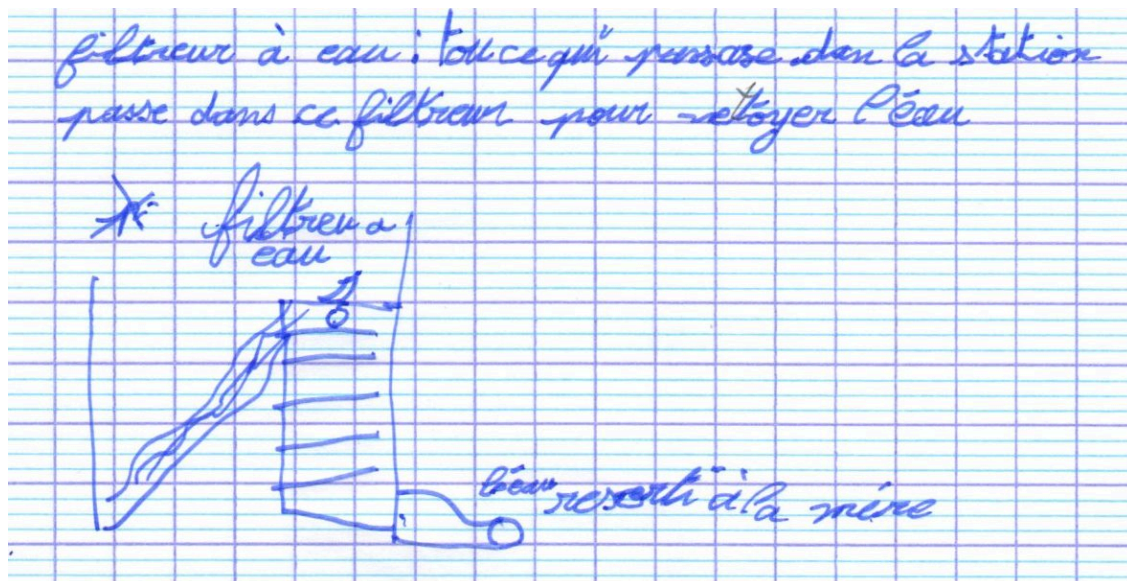 filtreur à eau : tou ce qui passase dan la station
passe dans ce filtreur pour nettoyer l'éau
filtreu a
eau
l'eau resorti à la mére